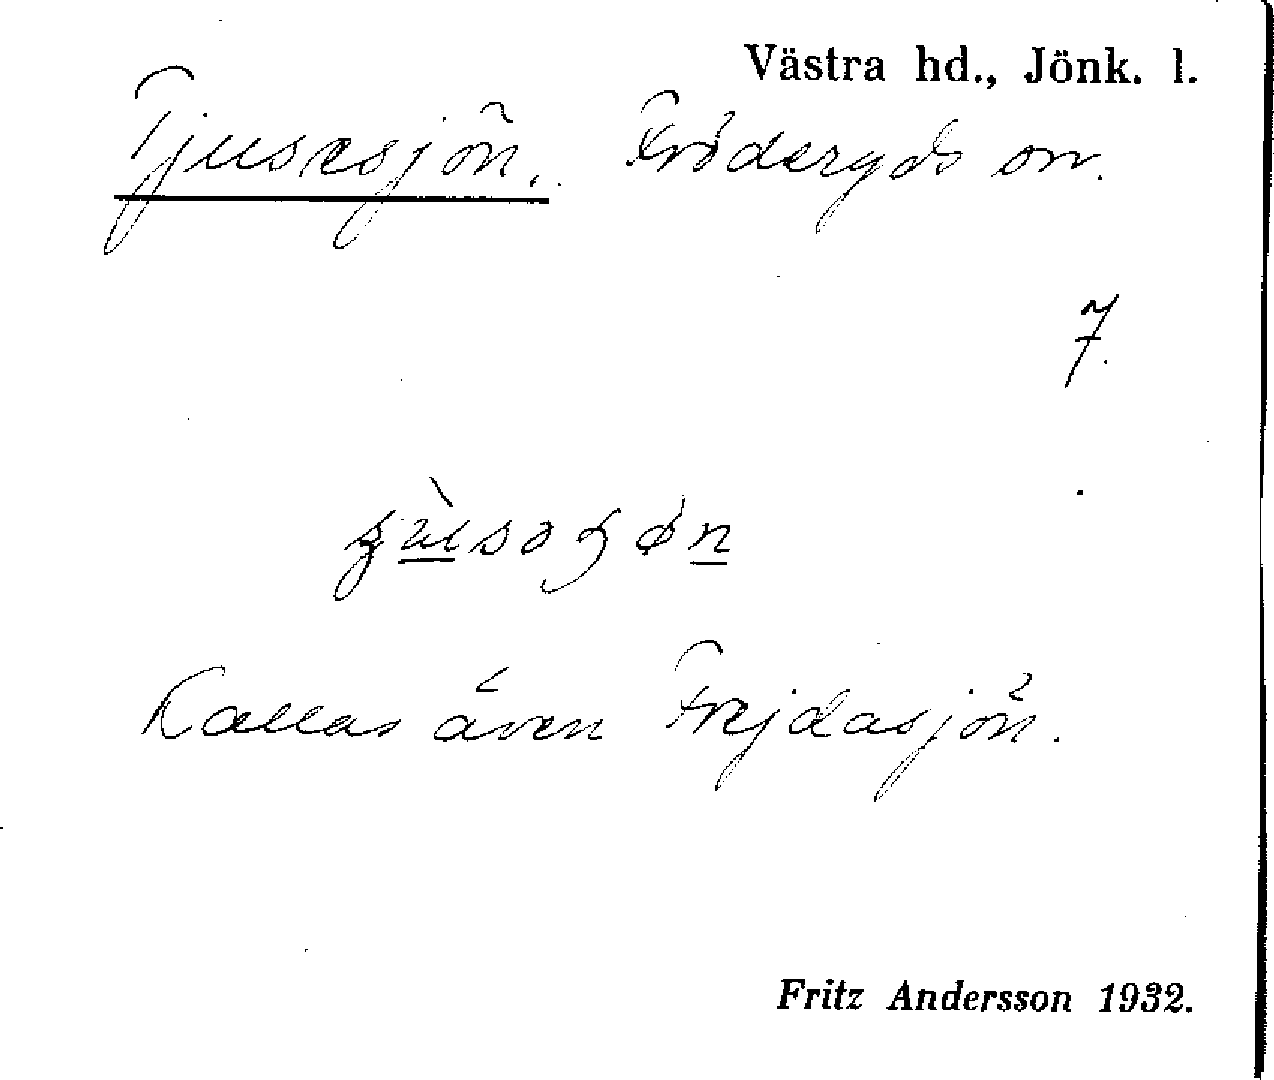 Västra hd., Jönk. l.
Tjusesjön. Fröderyds sn.
7.
Kallas även Frejdasjön.
Fritz Andersson 1932.